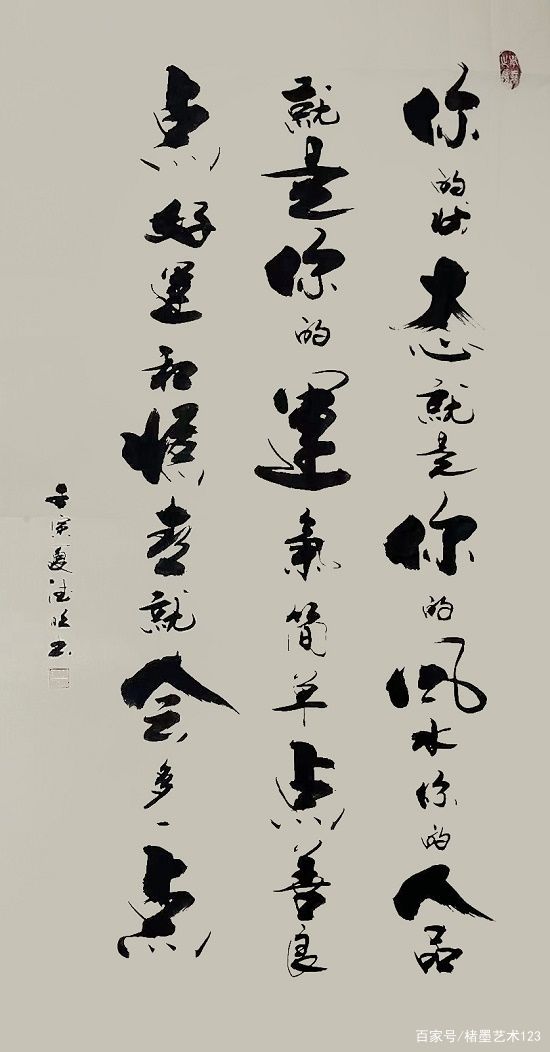 你的状态就是你的风水你的人品
就是你的运气简单点善良
点好运和惊喜就会多一点
壬寅夏德胜书
百家号/楮墨艺术123